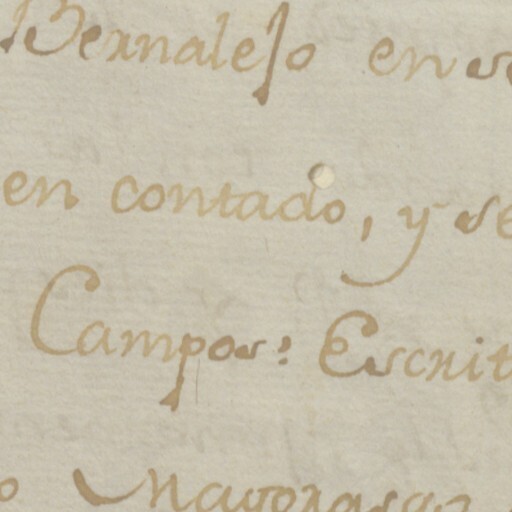 Bernalejo en
en contado, y se
Campos: Escrit
o Mayorazgo